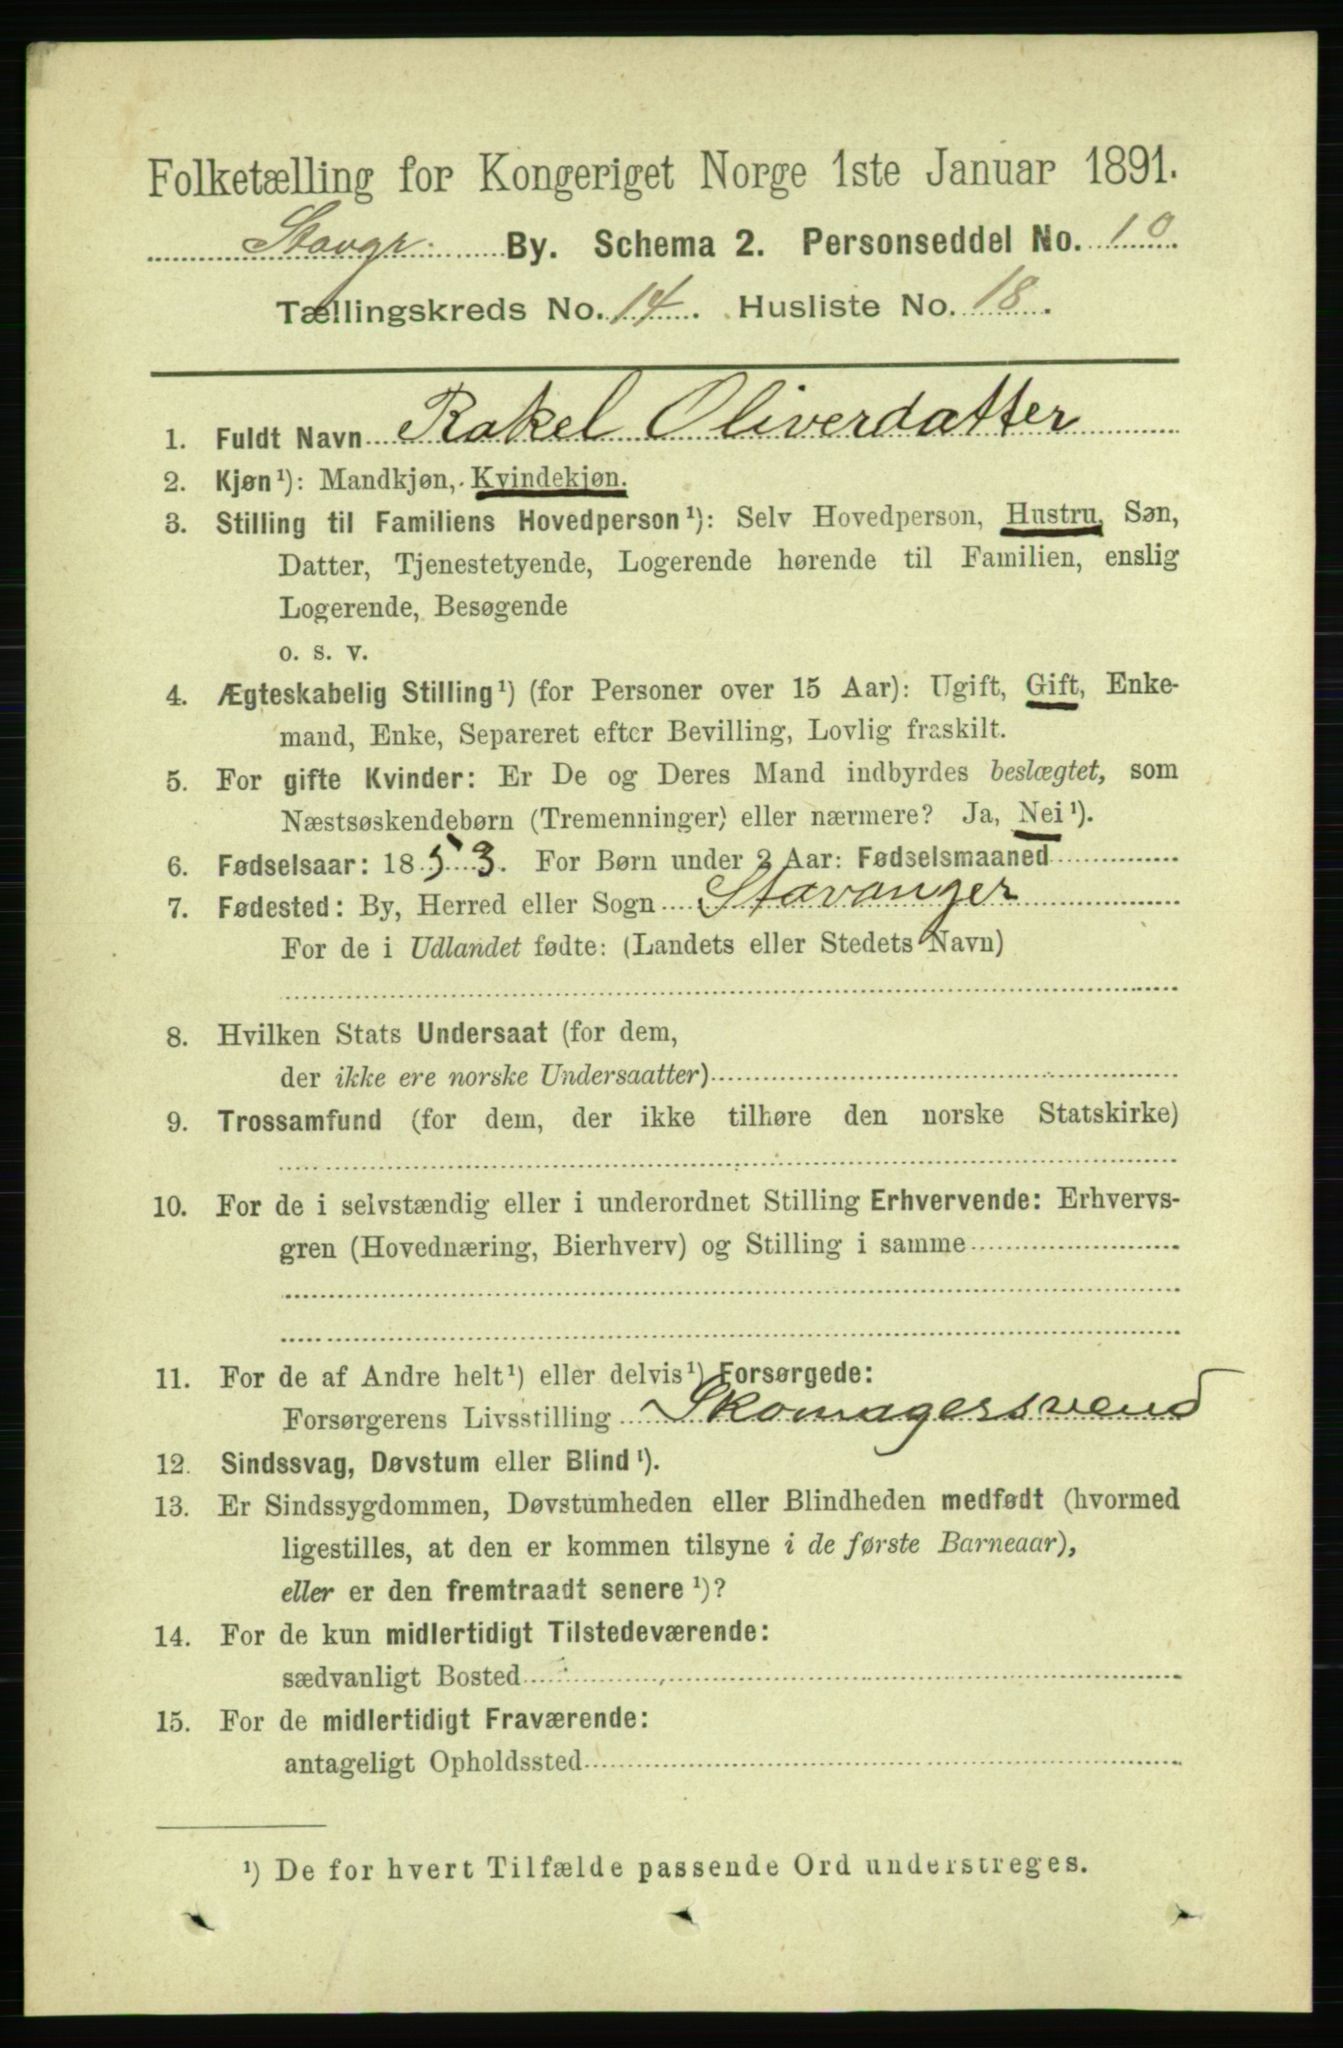 Folketælling for Kongeriget Norge 1ste Januar 1891.
Stavgr. By. Schema 2. Personseddel No. 10
Tællingskreds No. 14. Husliste No. 18.
1. Fuldt Navn Rakel Oliverdatter
2. Kjøn¹): Mandkjøn, Kvindekjøn.
3. Stilling til Familiens Hovedperson¹): Selv Hovedperson, Hustru, Søn,
Datter, Tjenestetyende, Logerende hørende til Familien, enslig
Logerende, Besøgende
o. s. v.
4. Ægteskabelig Stilling¹) (for Personer over 15 Aar): Ugift, Gift, Enke-
mand, Enke, Separeret efter Bevilling, Lovlig fraskilt.
5. For gifte Kvinder: Er De og Deres Mand indbyrdes beslægtet, som
Næstsøskendebørn (Tremenninger) eller nærmere? Ja, Nei¹).
6. Fødselsaar: 1853. For Børn under 2 Aar: Fødselsmaaned
7. Fødested: By, Herred eller Sogn Stavanger
For de i Udlandet fødte: (Landets eller Stedets Navn)
8. Hvilken Stats Undersaat (for dem,
der ikke ere norske Undersaatter)
9. Trossamfund (for dem, der ikke tilhøre den norske Statskirke)
10. For de i selvstændig eller i underordnet Stilling Erhvervende: Erhvervs-
gren (Hovednæring, Bierhverv) og Stilling i samme
11. For de af Andre helt¹) eller delvis¹) Forsørgede:
Forsørgerens Livsstilling Skomagersvend
12. Sindssvag, Døvstum eller Blind¹).
13. Er Sindssygdommen, Døvstumheden eller Blindheden medfødt (hvormed
ligestilles, at den er kommen tilsyne i de første Barneaar),
eller er den fremtraadt senere¹)?
14. For de kun midlertidigt Tilstedeværende:
sædvanligt Bosted
15. For de midlertidigt Fraværende:
antageligt Opholdssted
¹) De for hvert Tilfælde passende Ord understreges.